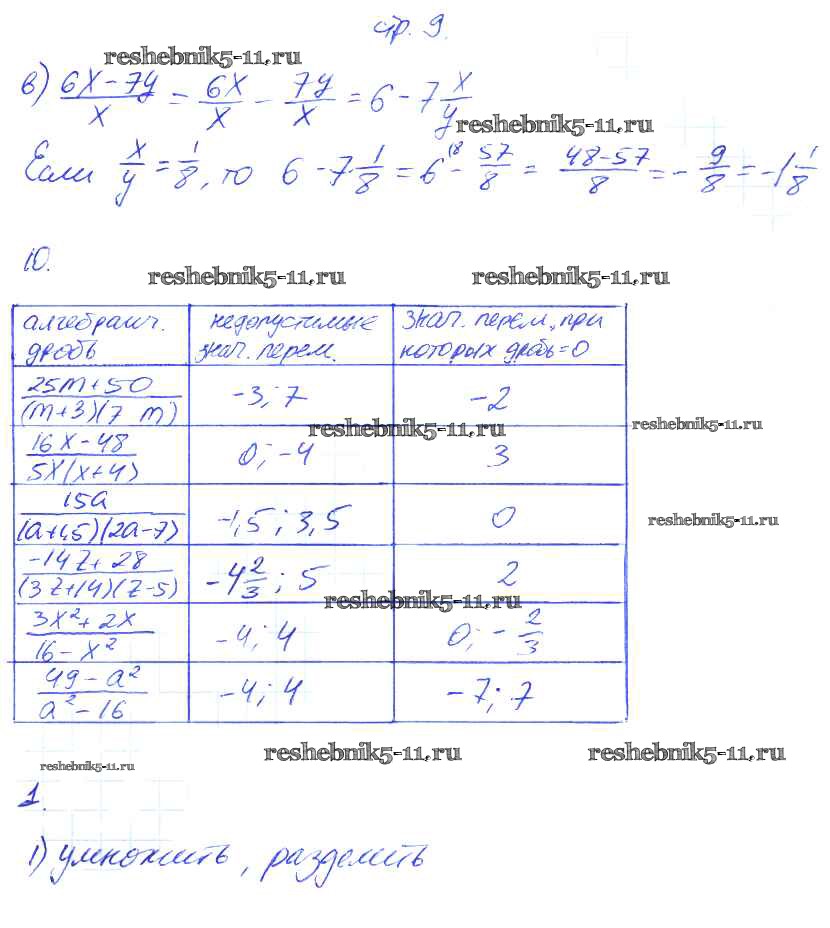 стр. 9.
reshebnik5-11.ru
в) (6x-7y)/x = 6x/x - 7y/x = 6 - 7 x/y
reshebnik5-11.ru
Если x/y = 1/8, то 6 - 7·1/8 = 6 - 57/8 = (48-57)/8 = -9/8 = -1 1/8
10.
reshebnik5-11.ru reshebnik5-11.ru
алгебраич. дробь | недопустимые знач. перем. | знач. перем., при которых дробь=0
(25m+50)/((m+3)(7 m)) | -3; 7 | -2
reshebnik5-11.ru reshebnik5-11.ru
(16x-48)/(5x(x+4)) | 0; -4 | 3
15a/((a+1,5)(2a-7)) | -1,5; 3,5 | 0
reshebnik5-11.ru
(-14z+28)/((3z+14)(z-5)) | -4 2/3; 5 | 2
reshebnik5-11.ru
(3x²+2x)/(16-x²) | -4; 4 | 0; -2/3
(49-a²)/(a²-16) | -4; 4 | -7; 7
reshebnik5-11.ru reshebnik5-11.ru reshebnik5-11.ru
1.
1) умножить, разделить